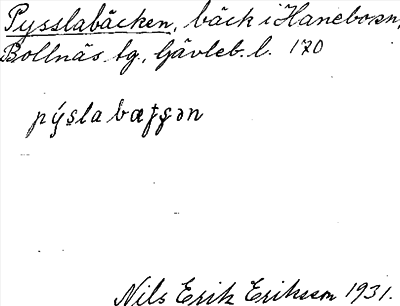 Pysslabäcken, bäck i Hanebo sn,
Bollnäs tg, Gävleb. l. 170
pýsla
Nils Erik Eriksson 1931.